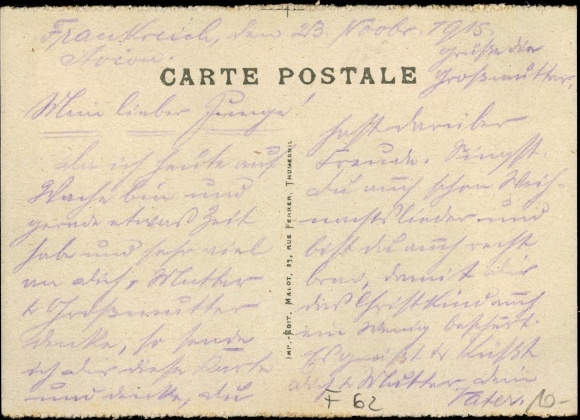 Frankreich, den 23. Novbr. 1915.
Avion.
Grüße die
Großmutter,
CARTE POSTALE
Mein lieber Junge!
da ich heute auf
Wache bin und
gerade etwas Zeit
habe und sehr viel
an dich, Mutter
& Großmutter
denke, so sende
ich dir diese Karte
und denke, du
IMP.-EDIT. MALOT, 23, RUE FERRER, THUMESNIL
hast darüber
Freude. Singst
du auch schon Weih-
nachtslieder und
bist du auch recht
brav, damit dir
das Christkind auch
ein wenig beschert.
Es grüßt & küßt
dich & Mutter dein
Vater.
F 62
10-